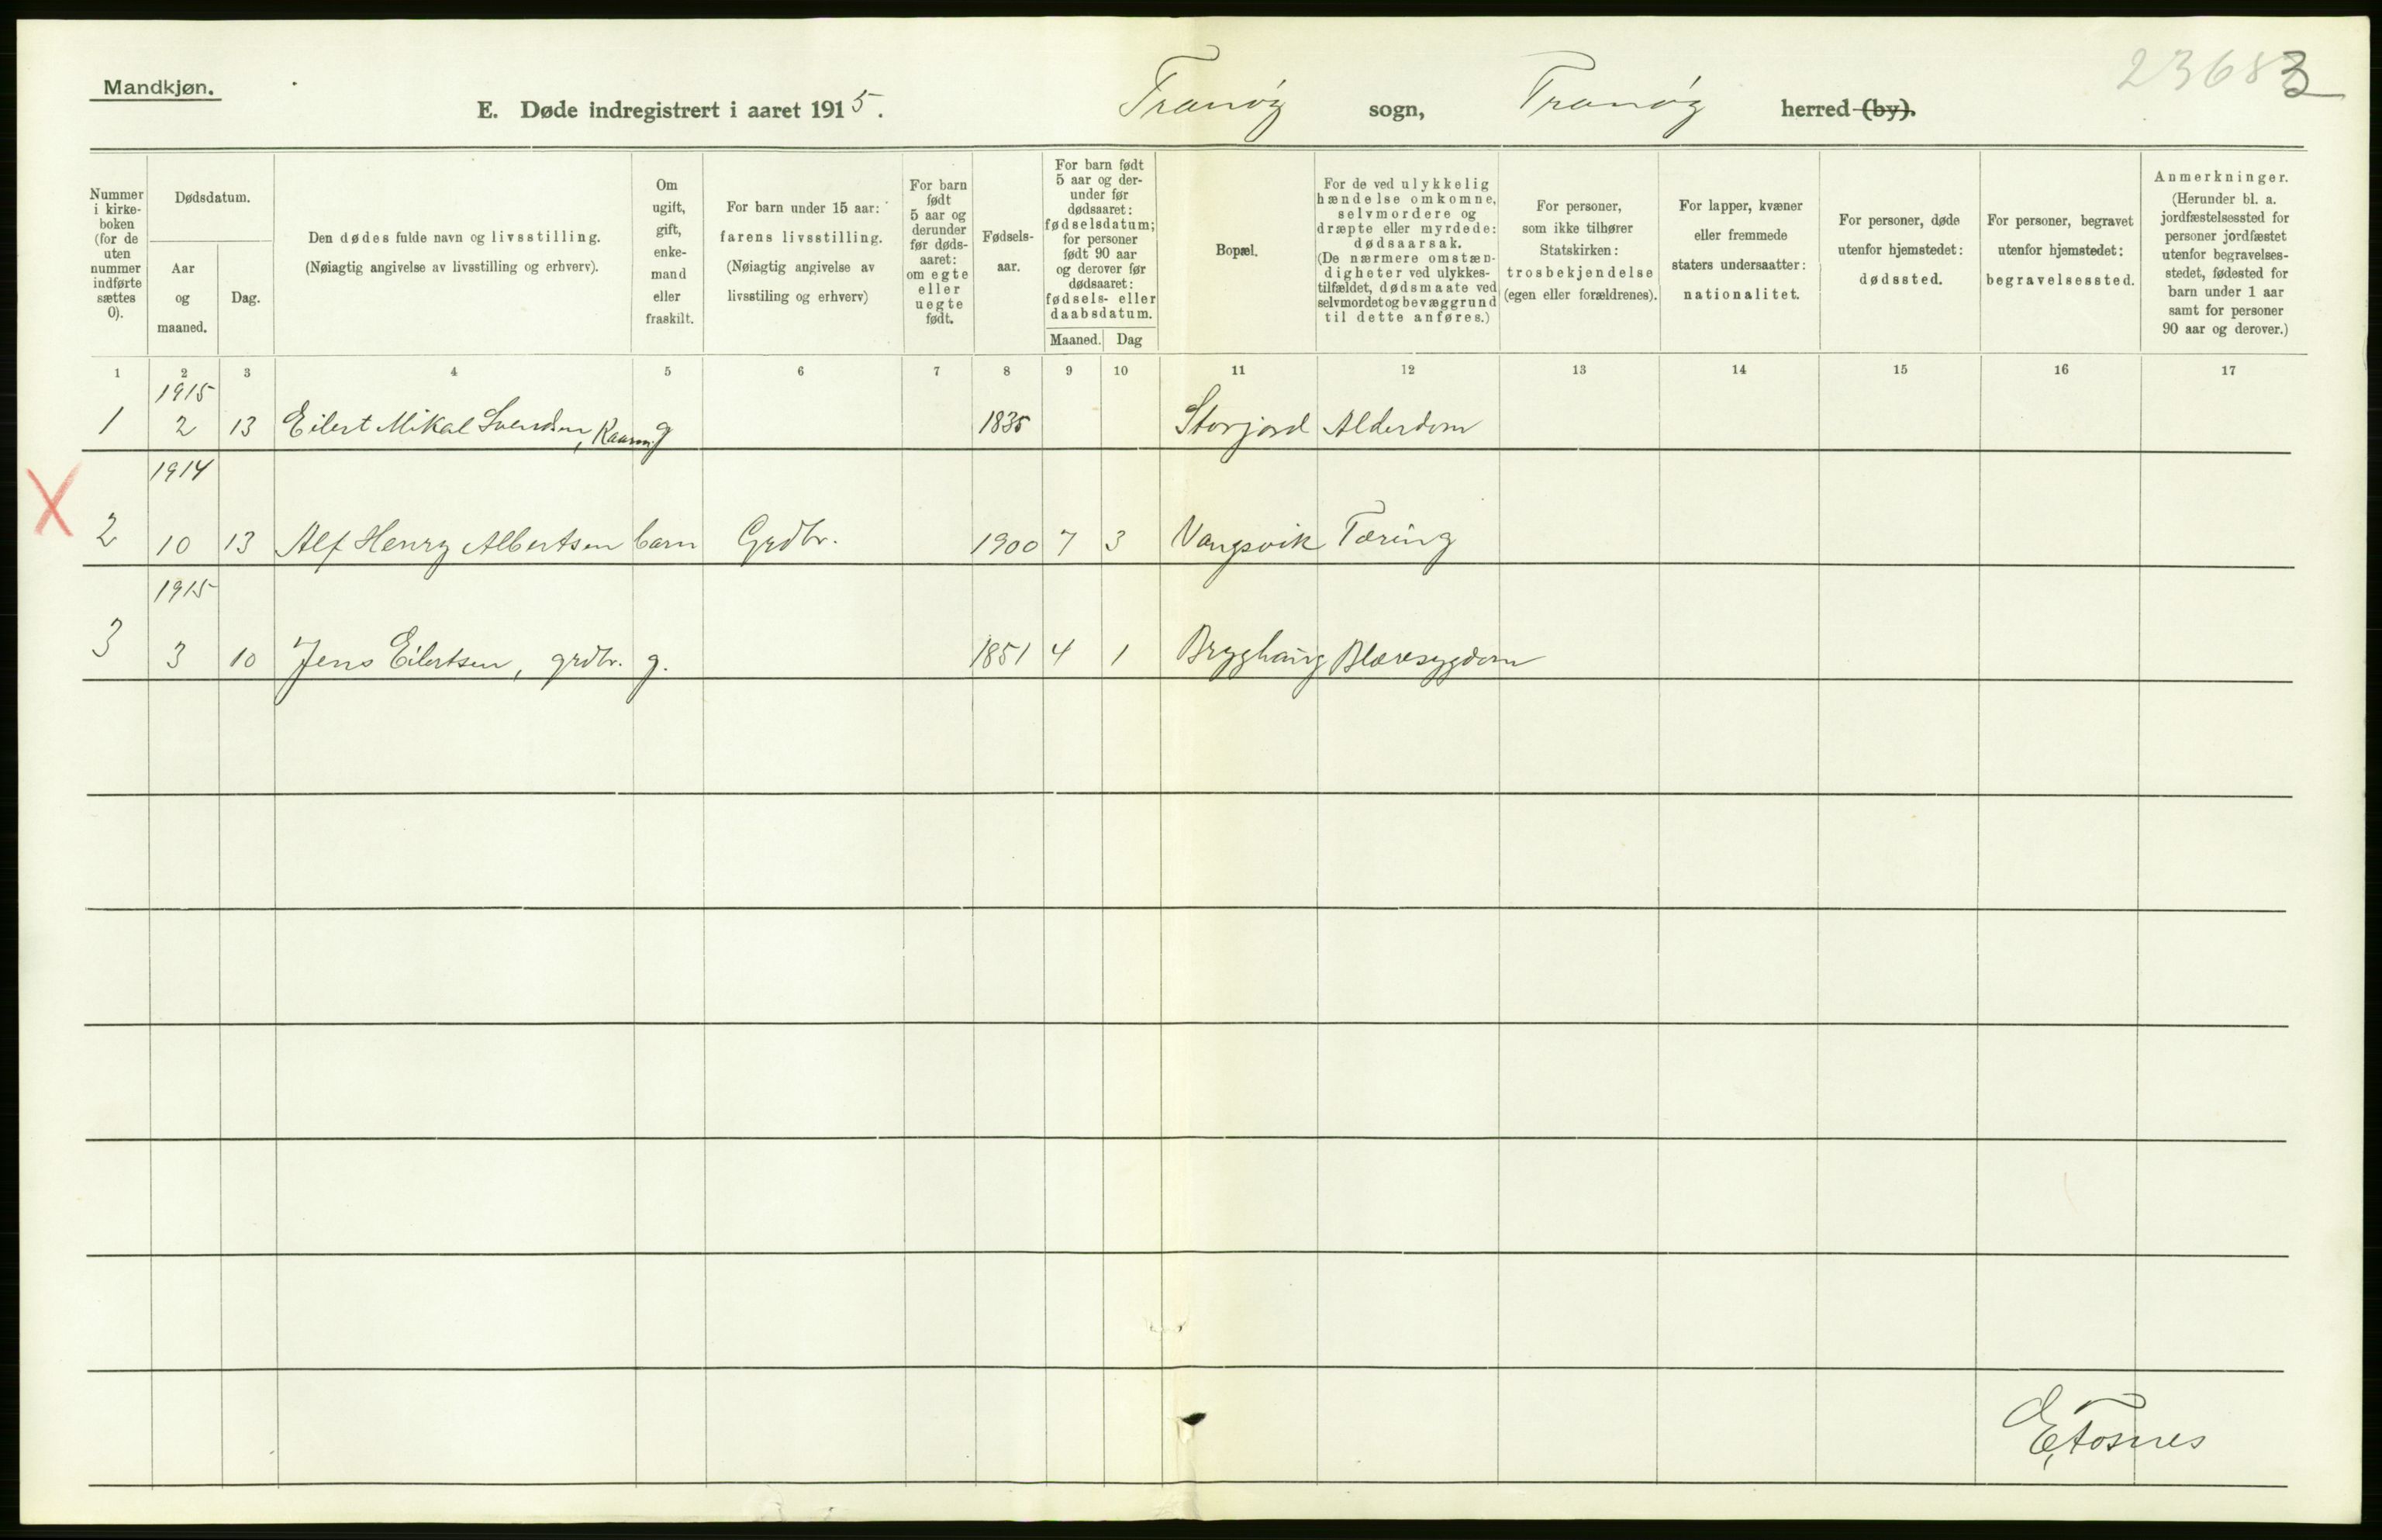 Mandkjøn.
23683
E. Døde indregistrert i aaret 1915. Tranöy sogn, Tranöy herred (by).
Nummer i kirke-boken (for de uten nummer indførte sættes 0).
Dødsdatum.
Aar og maaned.
Dag.
Den dødes fulde navn og livsstilling.
(Nøiagtig angivelse av livsstilling og erhverv).
Om ugift, gift, enke-mand eller fraskilt.
For barn under 15 aar:
farens livsstilling.
(Nøiagtig angivelse av
livsstiling og erhverv)
For barn født 5 aar og derunder før døds-aaret: om egte eller uegte født.
Fødsels-aar.
For barn født 5 aar og der-under før dødsaaret: fødselsdatum; for personer født 90 aar og derover før dødsaaret: fødsels- eller daabsdatum.
Maaned. Dag
Bopæl.
For de ved ulykkelig hændelse omkomne, selvmordere og dræpte eller myrdede: dødsaarsak.
(De nærmere omstæn-digheter ved ulykkes-tilfældet, dødsmaate ved selvmordet og bevæggrund til dette anføres.)
For personer, som ikke tilhører Statskirken: trosbekjendelse (egen eller forældrenes).
For lapper, kvæner eller fremmede staters undersaatter: nationalitet.
For personer, døde utenfor hjemstedet: dødssted.
For personer, begravet utenfor hjemstedet: begravelsessted.
Anmerkninger.
(Herunder bl. a. jordfæstelsessted for personer jordfæstet utenfor begravelses-stedet, fødested for barn under 1 aar samt for personer 90 aar og derover.)
1 2 3 4 5 6 7 8 9 10 11 12 13 14 15 16 17
1915
1 2 13 Eilert Mikal Svendsen, g 1835 Storjord Alderdom
1914
X
2 10 13 Alf Henry Albertsen barn Grdbr. 1900 7 3 Vangsvik Tæring
1915
3 3 10 Jens Eilertsen, grdbr. g. 1851 4 1 Brygghaug Blæresygdom
E. Fosnes